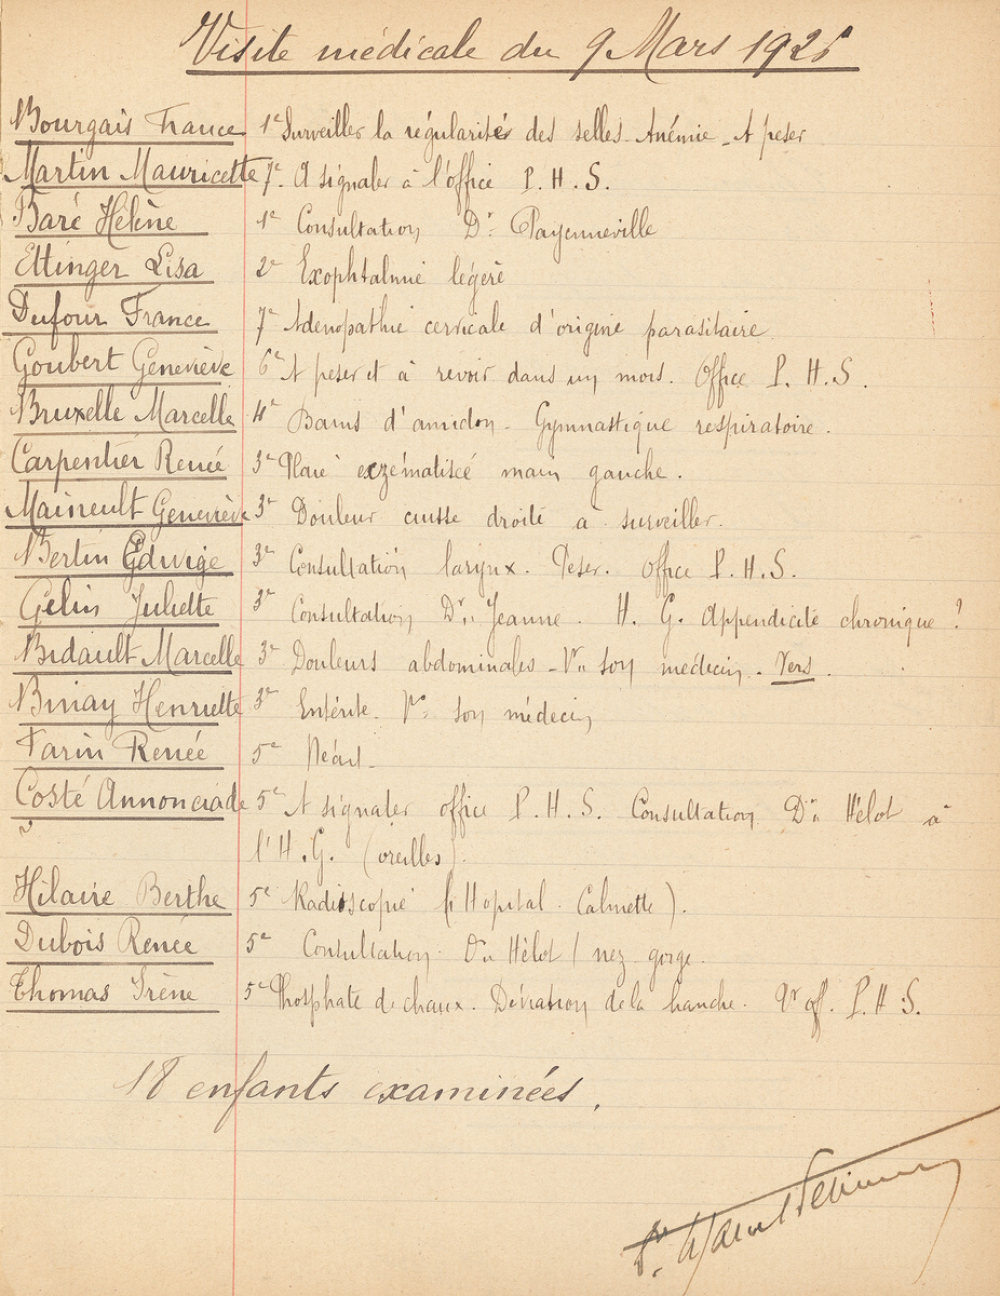 Visite médicale du 9 Mars 1926
Bourgais France 1e Surveiller la régularités des selles. Anémie. A peser
Martin Mauricette 7e A signaler à l'office P. H. S.
Baré Hélène 1e Consultation Dr Payenneville
Ettinger Lisa 2e Exophtalmie légère
Dufour France 7e Adenopathie cervicale d'origine parasitaire
Goubert Geneviève 6e A peser et à revoir dans un mois. Office P. H. S.
Bruxelle Marcelle 4e Bains d'amidon. Gymnastique respiratoire.
Carpentier Renée 3e Plaie exzématisée main gauche.
Maineult Geneviève 3e Douleur cuisse droite à surveiller.
Bertin Edwige 3e Consultation larynx. Peser. Office P. H. S.
Gelin Juliette 3e Consultation Dr Jeanne. H. G. Appendicite chronique ?
Bidault Marcelle 3e Douleurs abdominales - Vr son médecin. Vers.
Binay Henriette 3e Entérite. Vr son médecin
Farin Renée 5e Néant.
Costé Annonciade 5e A signaler office P. H. S. Consultation Dr Hélot à
l'H. G. (oreilles).
Hilaire Berthe 5e Radioscopie (Hopital Calmette).
Dubois Renée 5e Consultation Dr Hélot (nez gorge.
Thomas Irène 5e Phosphate de chaux. Déviation de la hanche. Vr off. P. H. S.
18 enfants examinées.
Dr